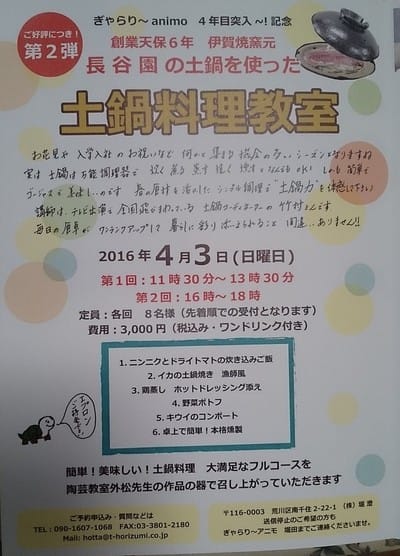 ご好評につき!
第2弾
ぎゃらり〜animo 4年目突入〜!記念
創業天保6年 伊賀焼窯元
長谷園の土鍋を使った
土鍋料理教室
お花見や入学入社のお祝いなど 何かと集まる機会の多いシーズンとなりますね
実は土鍋は万能調理器で 炊く 煮る 蒸す 焼く 燻すなんでもOK! しかも簡単で
ゴージャスで美味しいのです 春の食材を活かしたシンプル調理で"土鍋力"を体感して下さい
講師は、テレビ出演で全国飛びまわっている 土鍋コーディネーターの竹村さんです
毎日の食卓がワンランクアップして暮らしに彩りが添えられること 間違いありません!!
2016年4月3日(日曜日)
第1回:11時30分〜13時30分
第2回:16時〜18時
定員:各回 8名様(先着順での受付となります)
費用:3,000円(税込み・ワンドリンク付き)
1. ニンニクとドライトマトの炊き込みご飯
2. イカの土鍋焼き 漁師風
3. 鶏蒸し ホットドレッシング添え
4. 野菜ポトフ
5. キウイのコンポート
6. 卓上で簡単!本格燻製
エプロン
ご持参下さい
簡単!美味しい!土鍋料理 大満足なフルコースを
陶芸教室外松先生の作品の器で召し上がっていただきます
ご予約申込み・質問などは
TEL:090-1607-1068 FAX:03-3801-2180
Mail: hotta@t-horizumi.co.jp
〒116-0003 荒川区南千住 2-22-1 (株)堀澄
送信停止のご希望の方も
ぎゃらり〜アニモ 堀田までご連絡くださいませ。